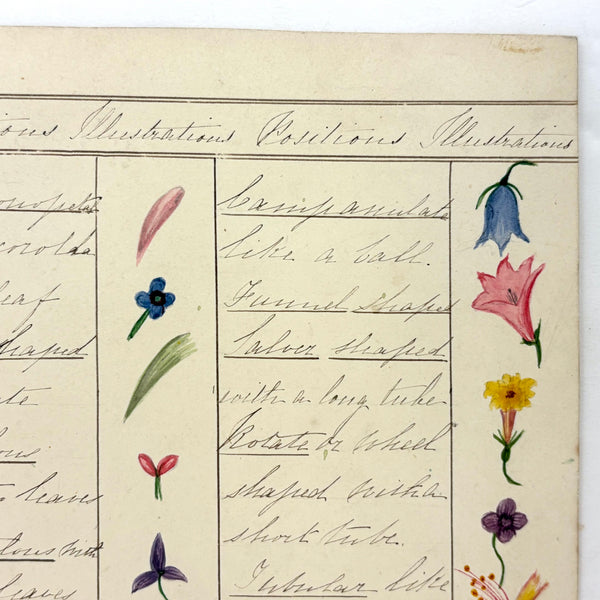 ions Illustrations Positions Illustrations
onopeta
corolda
leaf
shaped
ate
ous
leaves
ous with
leaves
Campanulate
like a ball.
Funnel shaped
Salver shaped
with a long tube
Rotate or wheel
shaped with a
short tube.
Tubular like